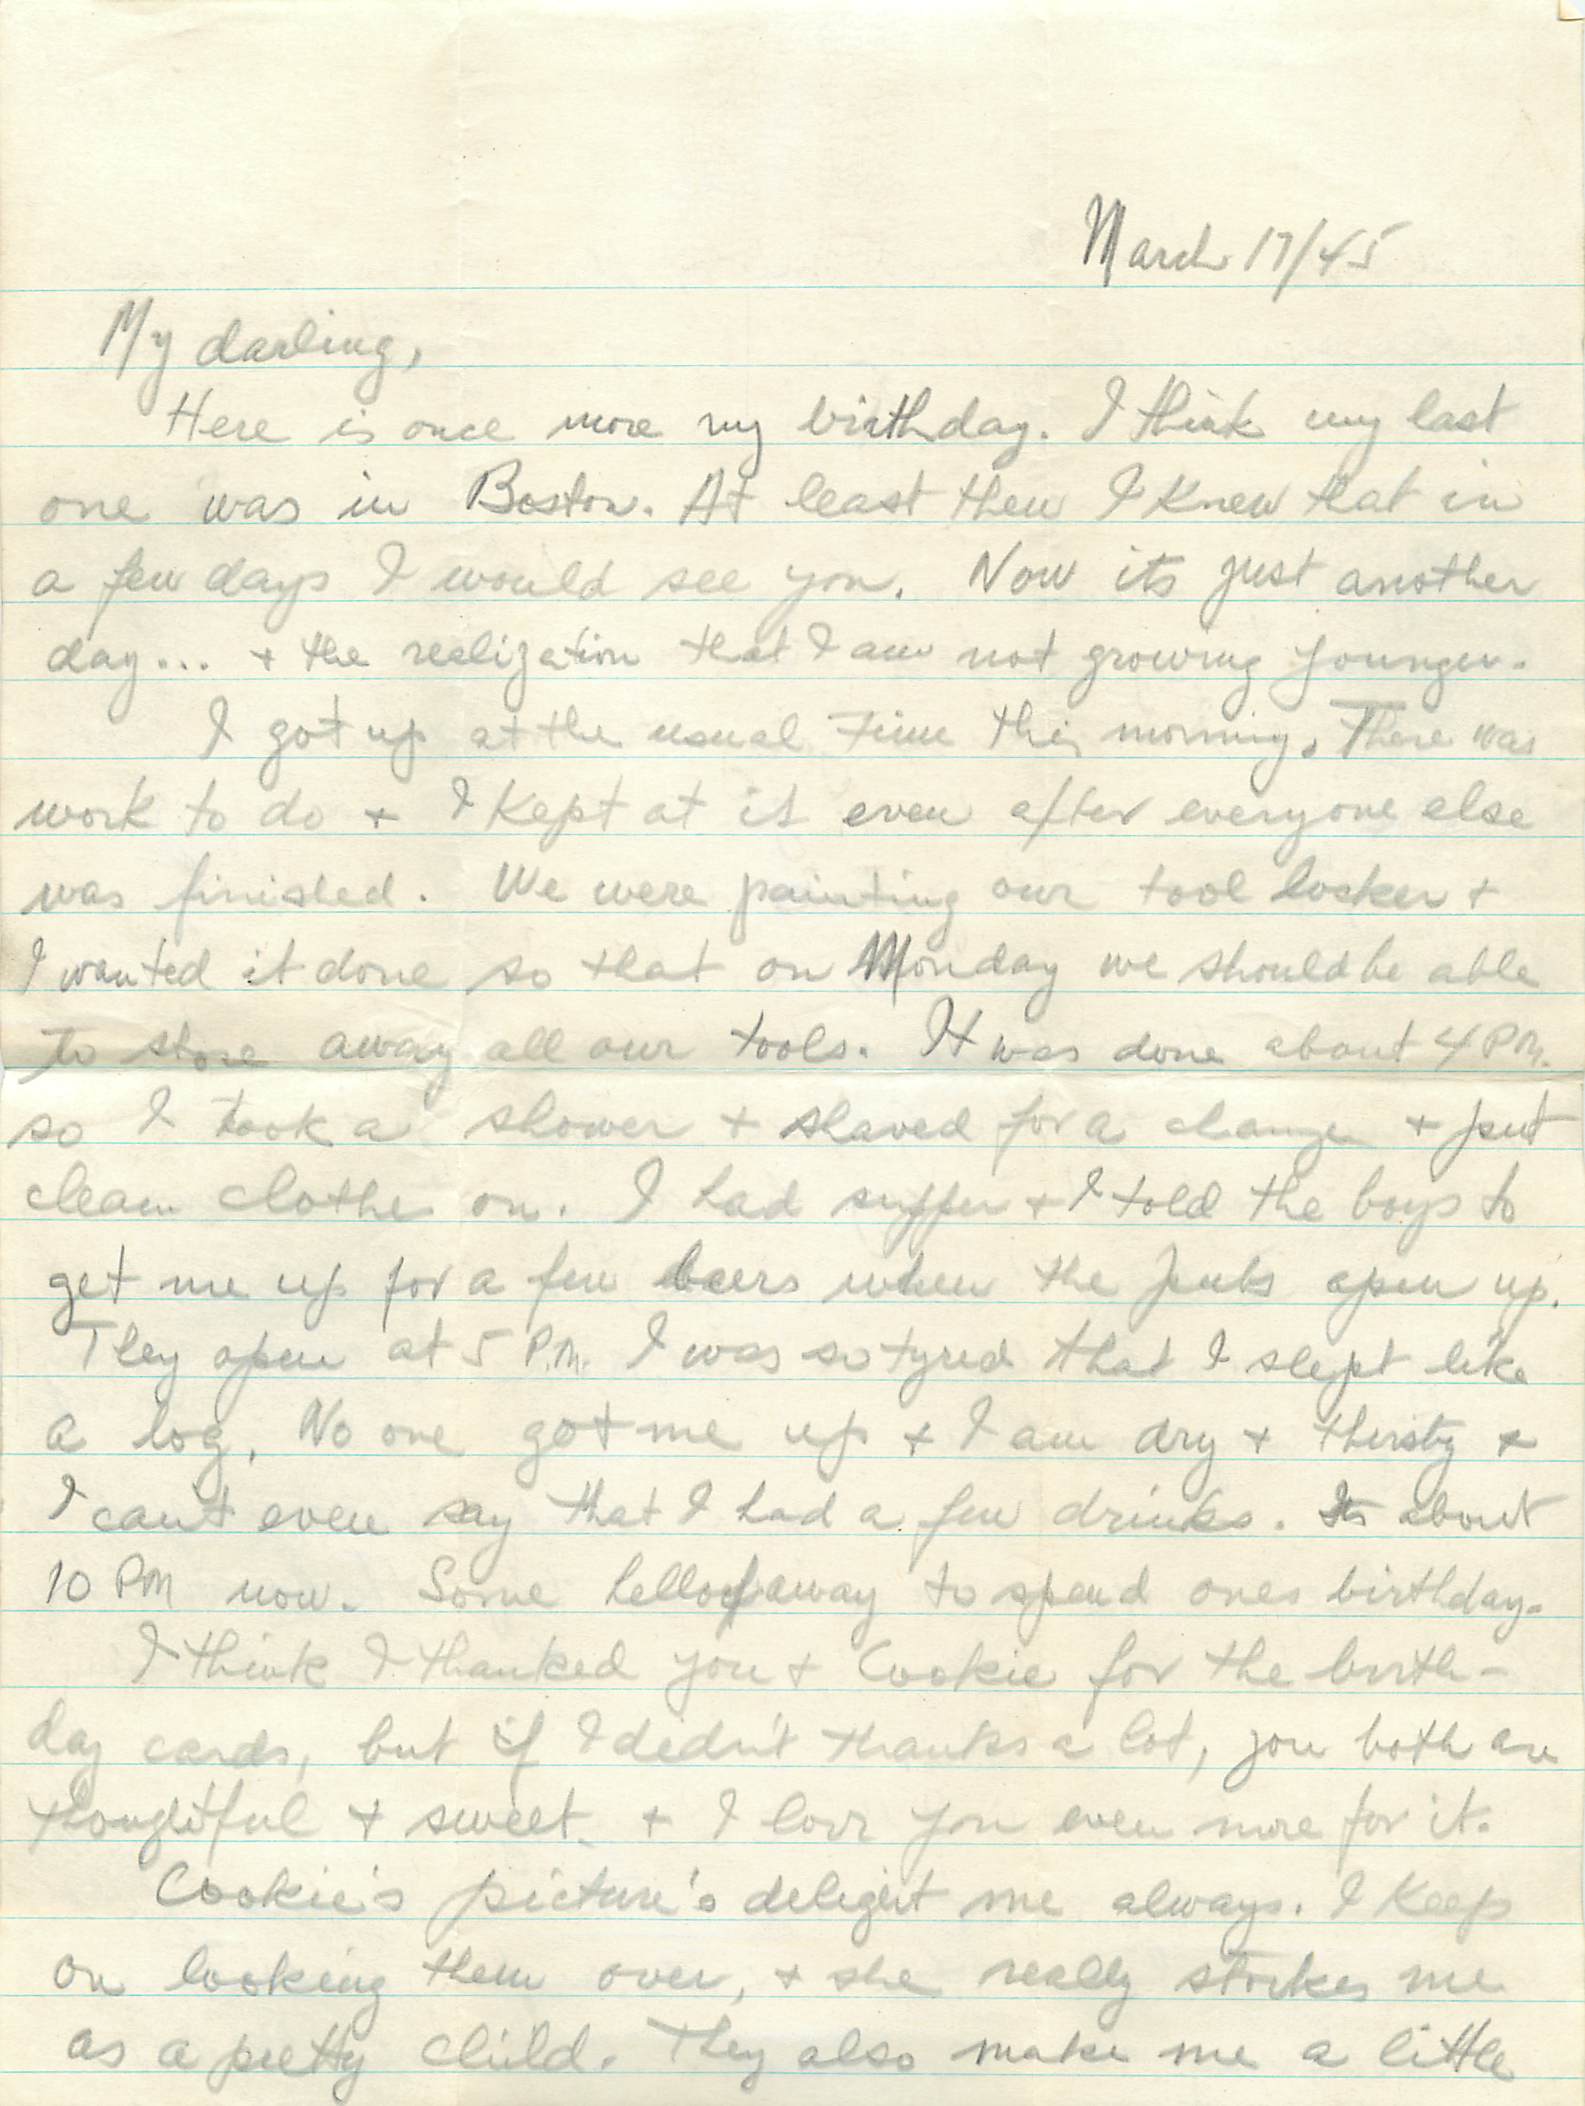 March 17/45
My darling,
Here is once more my birthday. I think my last
one was in Boston. At least then I knew that in
a few days I would see you. Now its just another
day... + the realization that I am not growing younger.
I got up at the usual time this morning. There was
work to do + I kept at it even after everyone else
was finished. We were painting our tool locker +
I wanted it done so that on Monday we should be able
to store away all our tools. It was done about 4 PM.
so I took a shower + shaved for a change + put
clean clothes on. I had supper + I told the boys to
get me up for a few beers when the pubs open up.
They open at 5 P.M. I was so tyred that I slept like
a log. No one got me up + I am dry + thirsty +
I cant even say that I had a few drinks. Its about
10 PM now. Some hell of a way to spend ones birthday.
I think I thanked you + Cookie for the birth-
day cards, but if I didn't thanks a lot, you both are
thoughtful + sweet + I love you even more for it.
Cookie's picture's delight me always. I keep
on looking them over, + she really strikes me
as a pretty child. They also make me a little